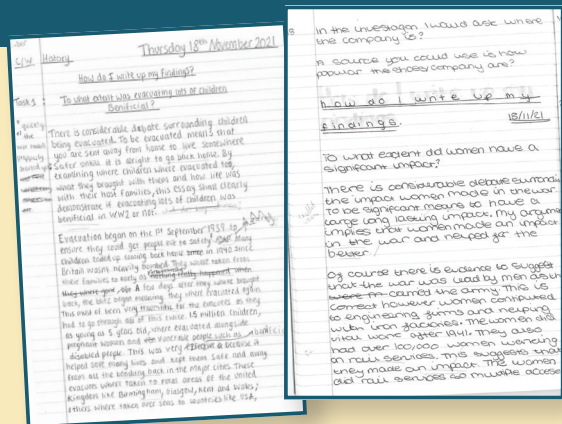 C/W History Thursday 18th November 2021
How do I write up my findings?
Task 1: To what extent was evacuating lots of children
Beneficial?
There is considerable debate surrounding children
being evacuated. To be evacuated means that
you are sent away from home to live somewhere
safer until it is alright to go back home. By
examining where children where evacuated too,
what they brought with them and how life was
with their host families, this essay shall clearly
demonstrate if evacuating lots of children was
beneficial in WW2 or not.
Evacuation began on the 1st September 1939 to
ensure they could get people out to safety. But many
children ended up coming back home since in 1940 since
Britain wasn't nearly bombed. They where taken from
their families to early as nothing really happened when
they where gone, for A few days after they where brought
back, the blitz began meaning they where evacuated again.
This must of been very traumatic for the evacuees as they
had to go through all of this twice. 1.5 million children,
as young as 5 years old, where evacuated alongside
pregnant women and vunerable people such as
disabled people. This was very because it
helped save many lives and kept them safe and away
from all the bombing back in the major cities. These
evacuees where taken to rural areas of the united
Kingdom like Buntingham, Glasgow, Kent and Wales;
others where taken over seas to countries like USA,
In the investagen I would ask where
the company is?
A source you could use is how
popular the shoes/company are?
how do I write up my
findings. 18/11/21
To what extent did women have a
significant impact?
There is considerable debate
the impact women made in the war.
To be significant means to have a
large long lasting impact. My
implies that women made an impact
in the war and helped for the
better.
Of course there is evidence to suggest
that the war was lead by men as
were in carried the army. This is
correct however women contributed
to engineering firms and helped
with iron factories. The women did
vital work after 1941. They also
had over 100,000 women working
on rail services. This suggests that
they made an impact. The women
did rail services so multiple